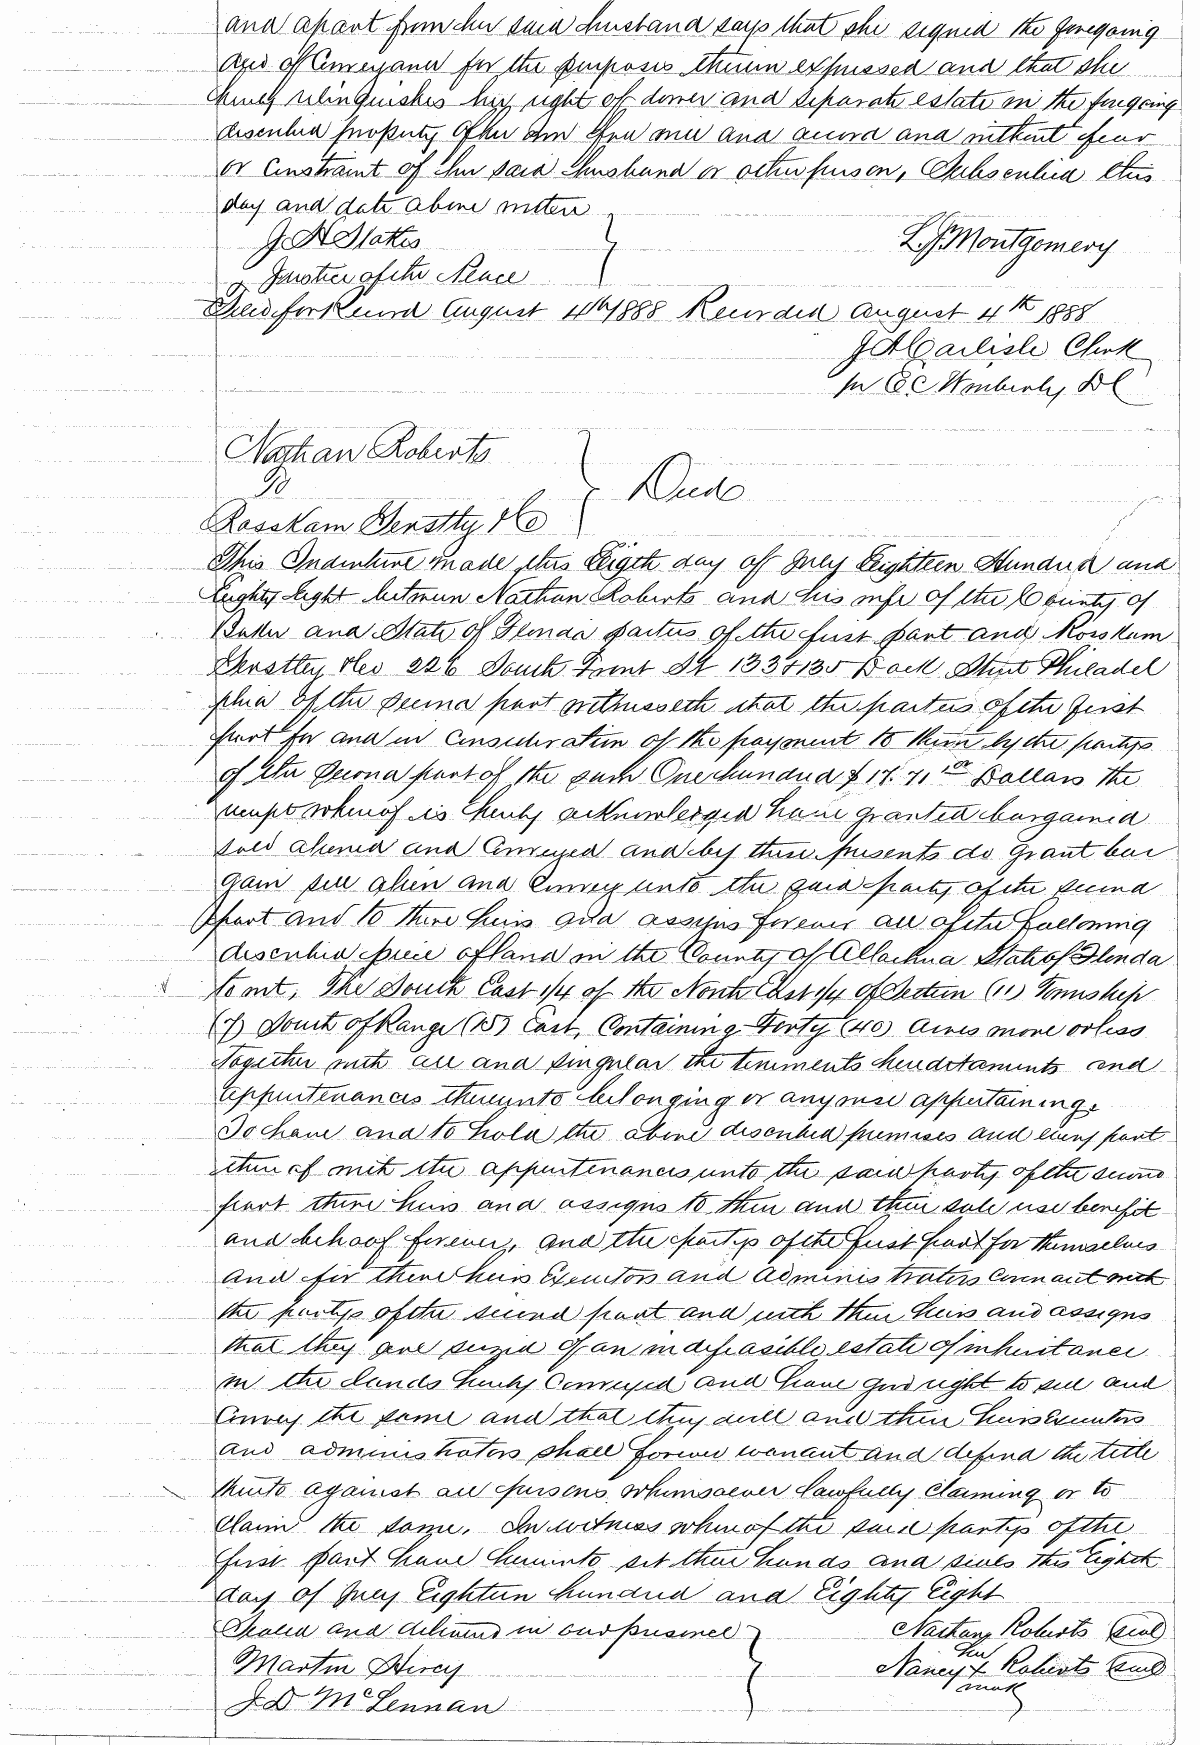 and apart from her said husband says that she signed the foregoing
deed of Conveyance for the purposes therein expressed and that she
hereby relinquishes her right of dower and separate estate in the foregoing
described property of her own free will and accord and without fear
or Constraint of her said husband or other person, Subscribed this
day and date above written
J. H. Stokes
L. J. Montgomery
Justice of the Peace
Filed for Record August 4th 1888 Recorded August 4th 1888
J A Carlisle Clerk
per E. C. Wimberly, DC
Nathan Roberts
To
Deed
Rosskam Gerstley & Co
This Indenture made this Eigth day of July Eighteen Hundred and
Eighty Eight between Nathan Roberts and his wife of the County of
Baker and State of Florida parties of the first part and Rosskam
Gerstley & Co 226 South Front St 133 & 135 Dock Street Philadel
phia of the Second part witnesseth that the parties of the first
part for and in Consideration of the payment to them by the partys
of the Second part of the sum One hundred & 17. 71 Dollars the
receipt whereof is hereby acknowledged have granted bargained
sold aliened and Conveyed and by these presents do grant bar
gain sell alien and Convey unto the said party of the second
part and to there heirs and assigns forever all of the following
described piece of land in the County of Allachua State of Florida
to wit; The South East 1/4 of the North East 1/4 of Section (11) Township
(7) South of Range (15) East, Containing Forty (40) Acres more or less
Together with all and singular the tenements hereditaments and
appurtenances thereunto belonging or anywise appertaining.
To have and to hold the above described premises and every part
thereof with the appurtenances unto the said party of the second
part there heirs and assigns to their and their sole use benefit
and behoof forever, and the partys of the first part for themselves
and for there heirs Executors and Administrators Covenant with
the partys of the second part and with their heirs and assigns
that they are seized of an indefeasible estate of inheritance
in the lands hereby Conveyed and have good right to sell and
Convey the same and that they will and their heirs Executors
and administrators shall forever warrant and defend the title
thereto against all persons whomsoever lawfully Claiming or to
Claim the same. In witness whereof the said partys of the
first part have hereunto set their hands and seals this Eighth
day of July Eighteen hundred and Eighty Eight
Sealed and delivered in our presence
Nathan Roberts (seal)
her
Martin Hircy
Nancy X Roberts (seal)
mark
J. D. McLennan